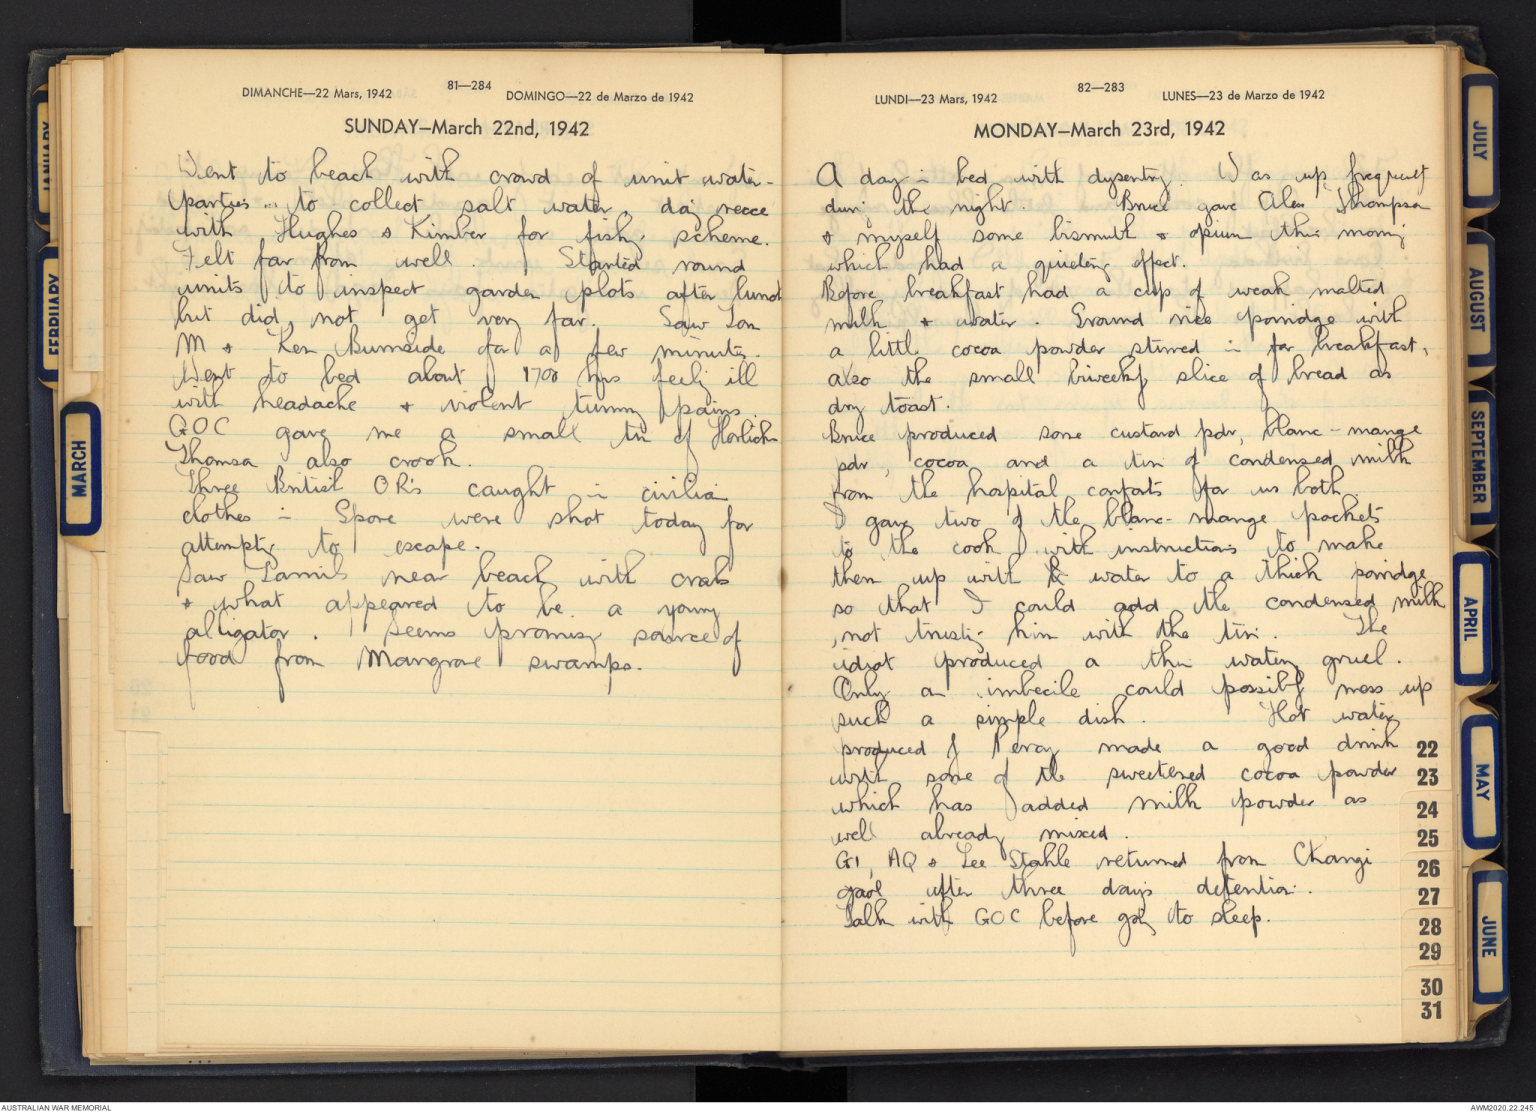 JANUARY
FEBRUARY
MARCH
DIMANCHE—22 Mars, 1942
81—284
DOMINGO—22 de Marzo de 1942
SUNDAY—March 22nd, 1942
Went to beach with crowd of unit water-
parties to collect salt water, doing recce
with Hughes & Kimber for fishg scheme.
Felt far from well. Started round
units to inspect garden plots after lunch
but did not get very far. Saw Tom
M & Ken Burnside for a few minutes.
Went to bed about 1700 hrs feelg ill
with headache & violent tummy pains.
GOC gave me a small tin of Horlicks
Thomson also crook.
Three British ORs caught in civilian
clothes in Spore were shot today for
attemptg to escape.
Saw Tamils near beach with crabs
& what appeared to be a young
alligator. Seems promisg source of
food from Mangrove swamps.
LUNDI—23 Mars, 1942
82—283
LUNES—23 de Marzo de 1942
MONDAY—March 23rd, 1942
A day in bed with dysentry. Was up frequently
durg the night Bruce gave Alex Thompson
& myself some bismuth & opium this morng
which had a quieteng effect.
Before breakfast had a cup of weak malted
milk & water. Ground rice porridge with
a little cocoa powder stirred in for breakfast,
also the small biweekly slice of bread as
dry toast.
Bruce produced some custard pdr, blanc-mange
pdr, cocoa and a tin of condensed milk
from the hospital comforts for us both
I gave two of the blanc-mange packets
to the cook with instructions to make
them up with water to a thick porridge
so that I could add the condensed milk
, not trustig him with the tin. The
idiot produced a thin watery gruel.
Only an imbecile could possibly mess up
such a simple dish. Hot water
produced by Percy made a good drink
with some of the sweetened cocoa powder
which has added milk powder as
well already mixed.
G1, AQ & Lee Stahle returned from Changi
gaol after three days detention.
Talk with GOC before goig to sleep.
22
23
24
25
26
27
28
29
30
31
JULY
AUGUST
SEPTEMBER
APRIL
MAY
JUNE
AUSTRALIAN WAR MEMORIAL
AWM2020.22.245